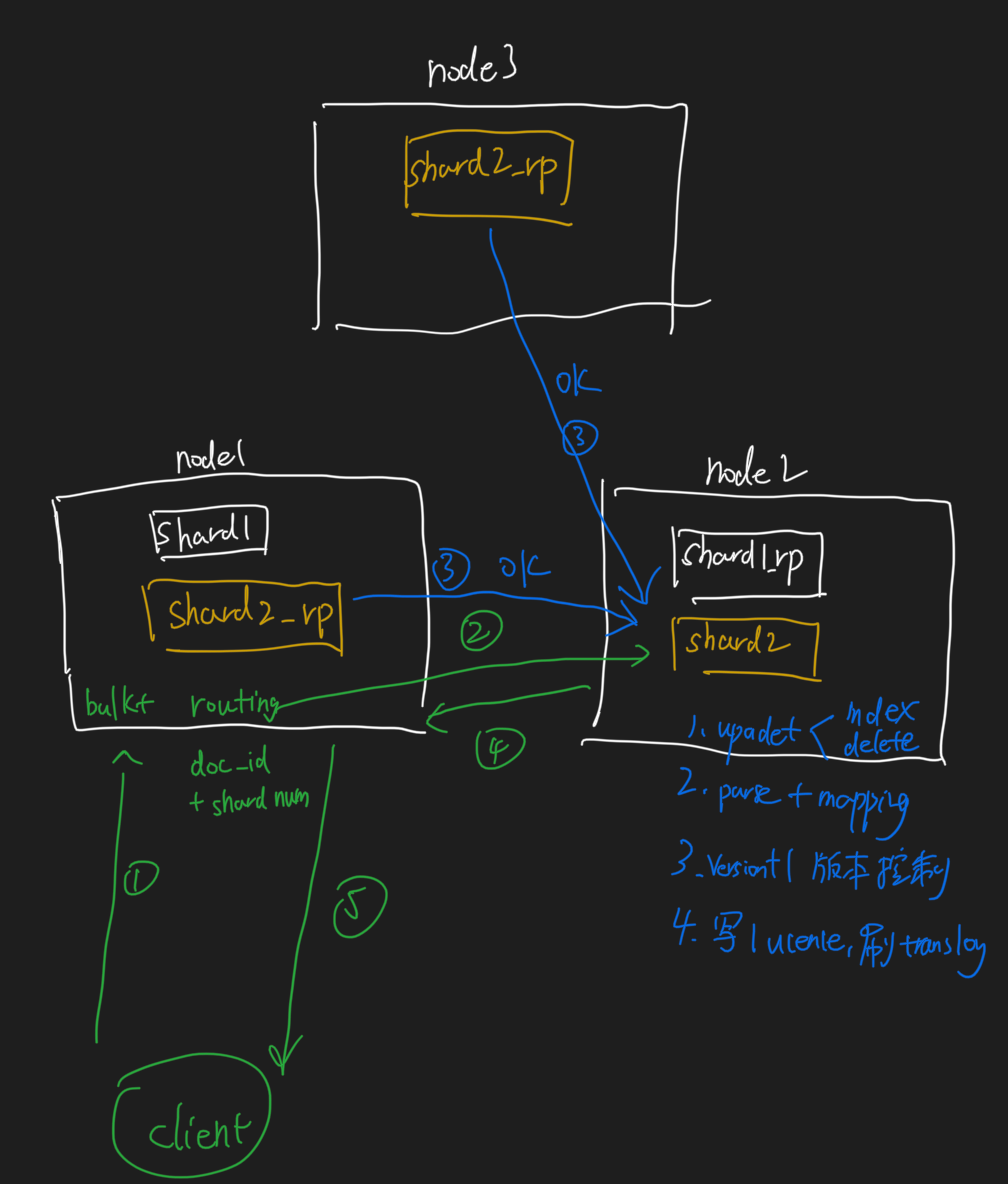 node3
shard2_rp
ok
③
node1
shard1
shard2_rp
bulk+ routing
doc_id
+ shard num
③ ok
②
④
node2
shard1_rp
shard2
1. upadet < index
delete
2. parse + mapping
3_version+1 版本控制
4. 写lucenle, 刷translog
①
⑤
client